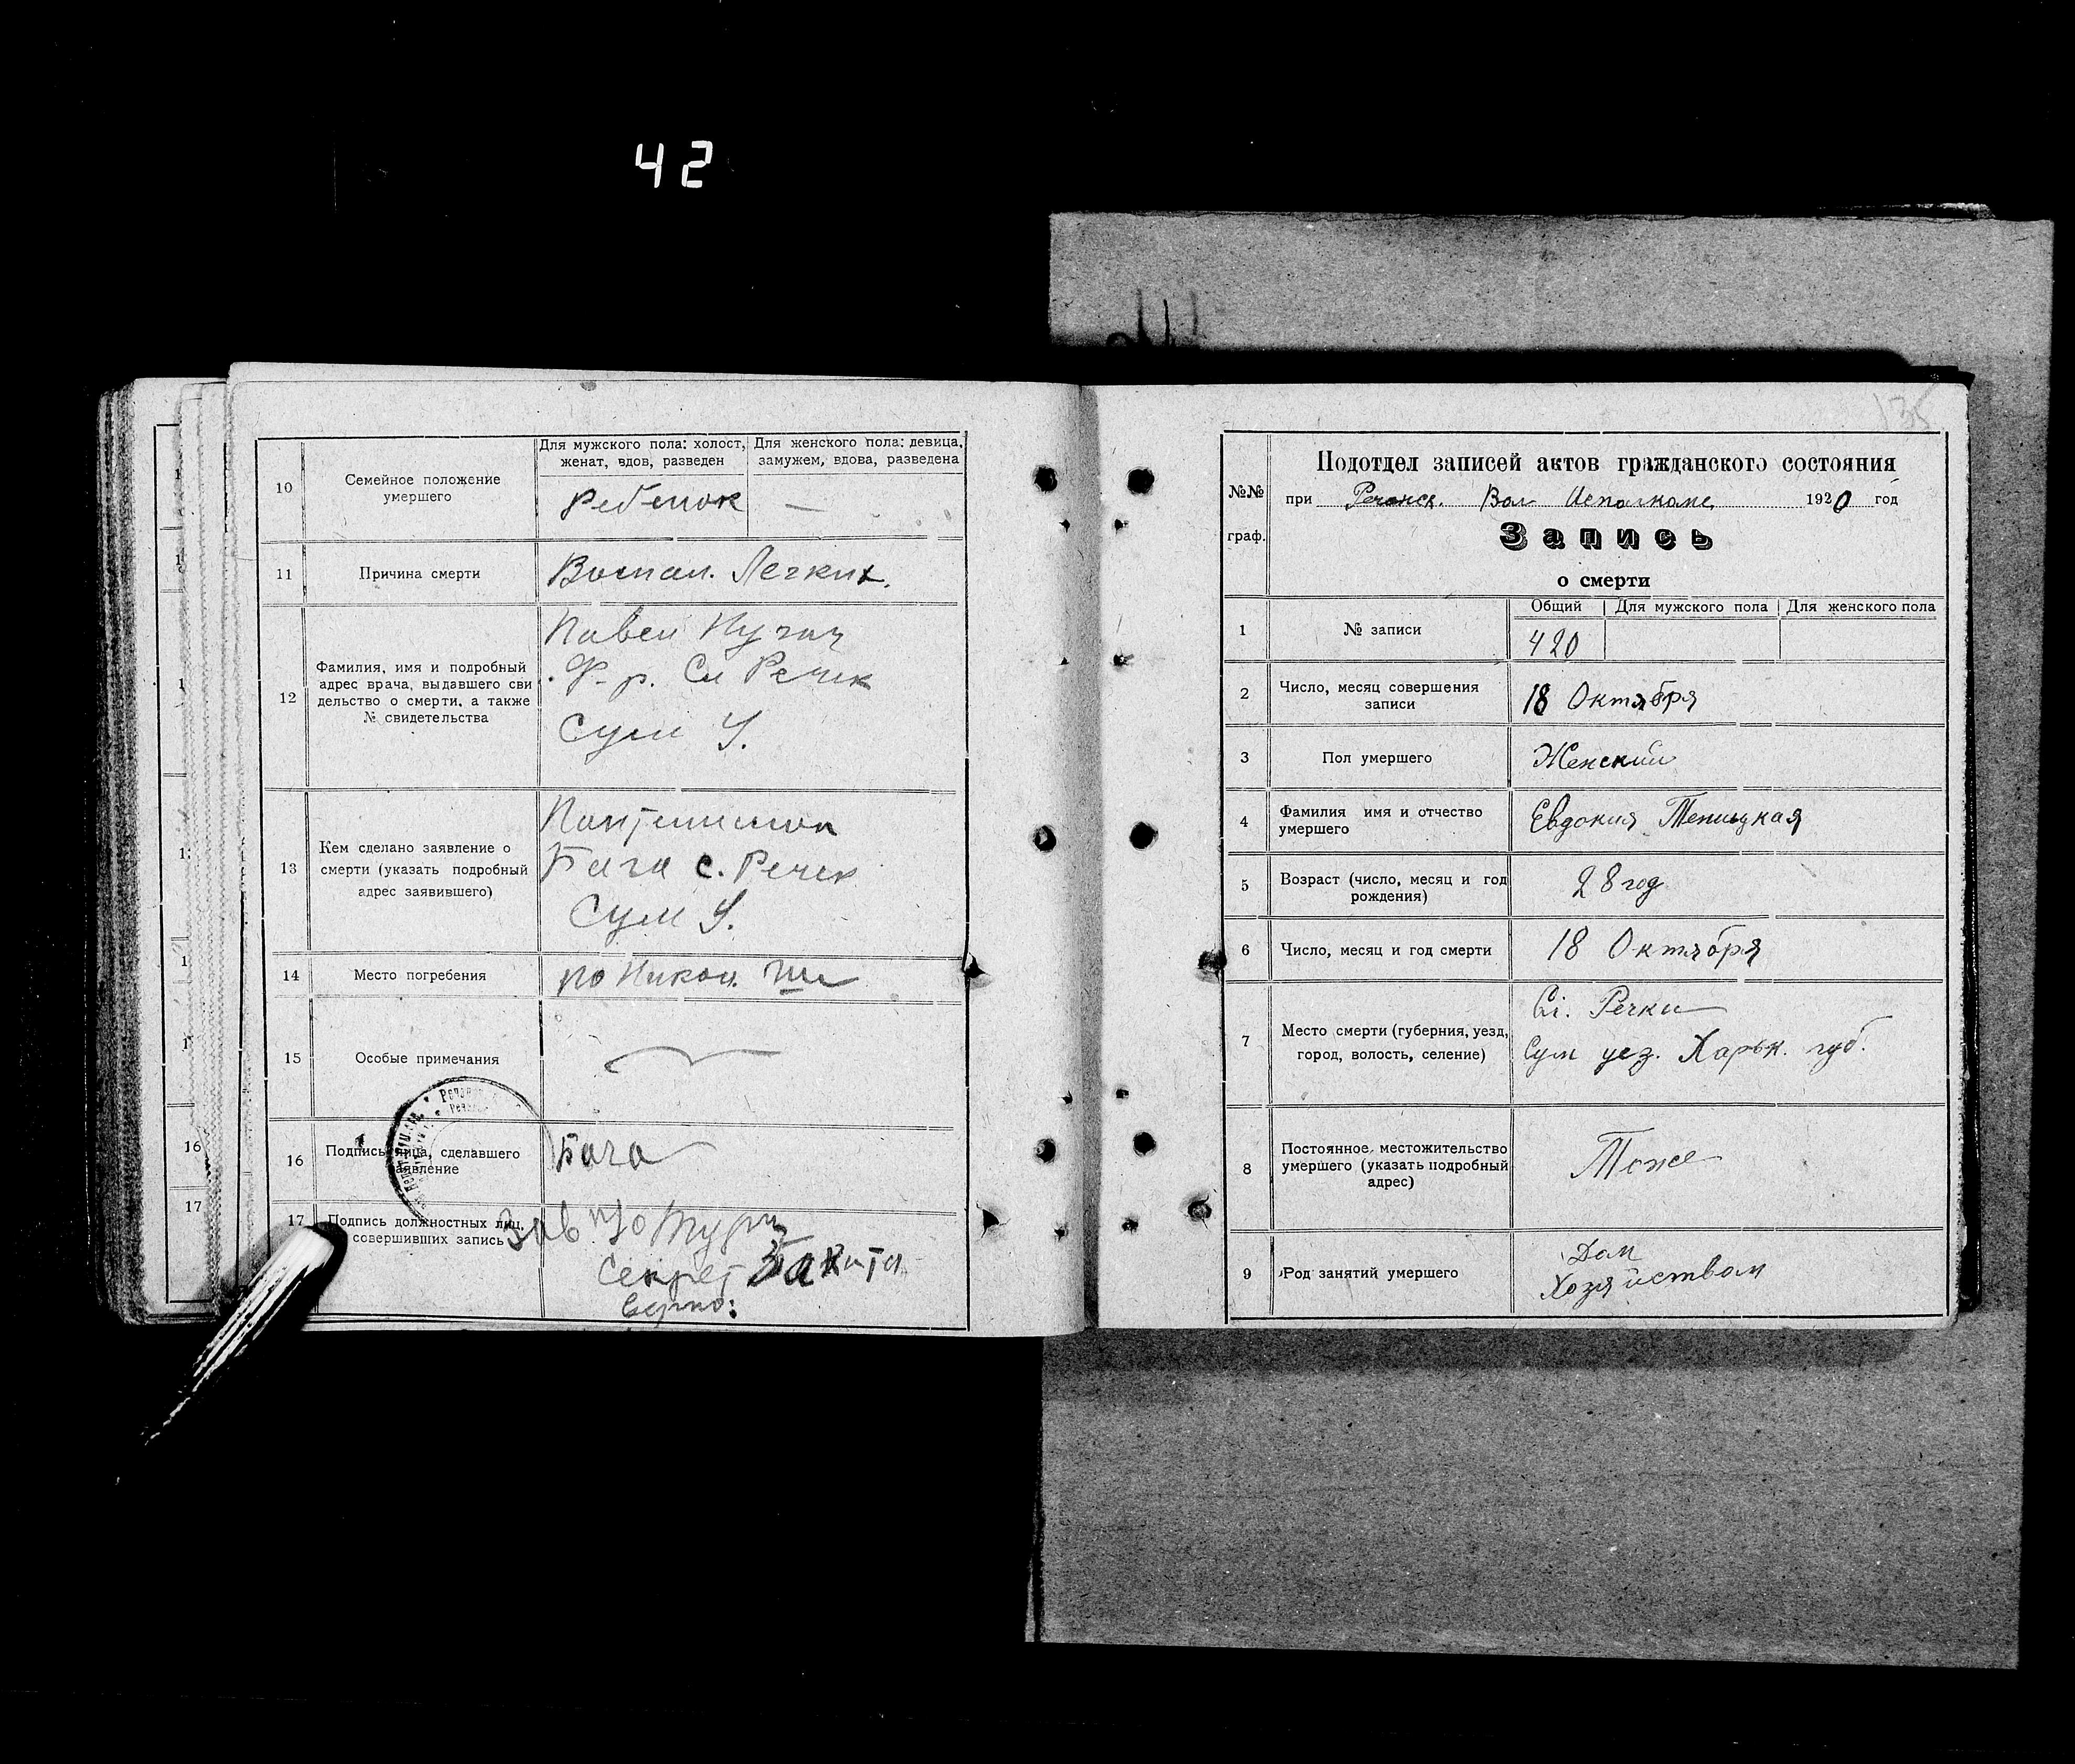 42
10
Семейное положение
умершего
Для мужского пола: холост,
женат, вдов, разведен
Для женского пола: девица,
замужем, вдова, разведена
Ребенок
—
11
Причина смерти
Воспал. Легких.
12
Фамилия, имя и подробный
адрес врача, выдавшего сви
дельство о смерти, а также
№ свидетельства
Павел
Ф-р. Сл Речек
Сум У.
13
Кем сделано заявление о
смерти (указать подробный
адрес заявившего)
Бага с. Речек
Сум У.
14
Место погребения
по Никол.
15
Особые примечания
16
Подпись лица, сделавшего
заявление
Бага
17
Подпись должностных лиц,
совершивших запись
Зав п/о
Секрет
Верно:
16
17
135
№№
граф.
Подотдел записей актов гражданского состояния
при Речанск. Вол Исполкоме 1920 год
Запись
о смерти
1
№ записи
Общий
Для мужского пола
Для женского пола
420
2
Число, месяц совершения
записи
18 Октября
3
Пол умершего
Женский
4
Фамилия имя и отчество
умершего
Евдокия Теницкая
5
Возраст (число, месяц и год
рождения)
28 год
6
Число, месяц и год смерти
18 Октября
7
Место смерти (губерния, уезд,
город, волость, селение)
Сл. Речки
Сум уез. Харьк. губ.
8
Постоянное местожительство
умершего (указать подробный
адрес)
Тоже
9
Род занятий умершего
Дом
Хозяйством